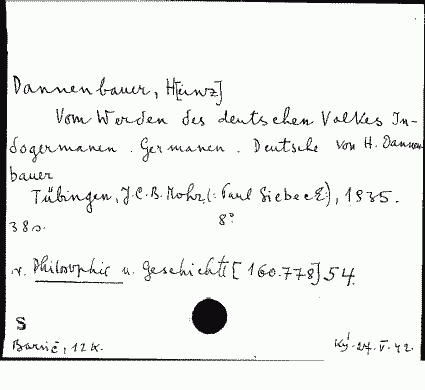 Dannenbauer, H[einz]
Vom Werden des deutschen Volkes In-
dogermanen. Germanen. Deutsche von H. Dannen-
bauer
Tübingen, J.C.B. Mohr, (: Paul Siebeck:), 1935.
38 s. 8°
v. Philosophie u. Geschichte [160.778] 54.
S
Barsič, 12 K. Ký. 27. V. 42.